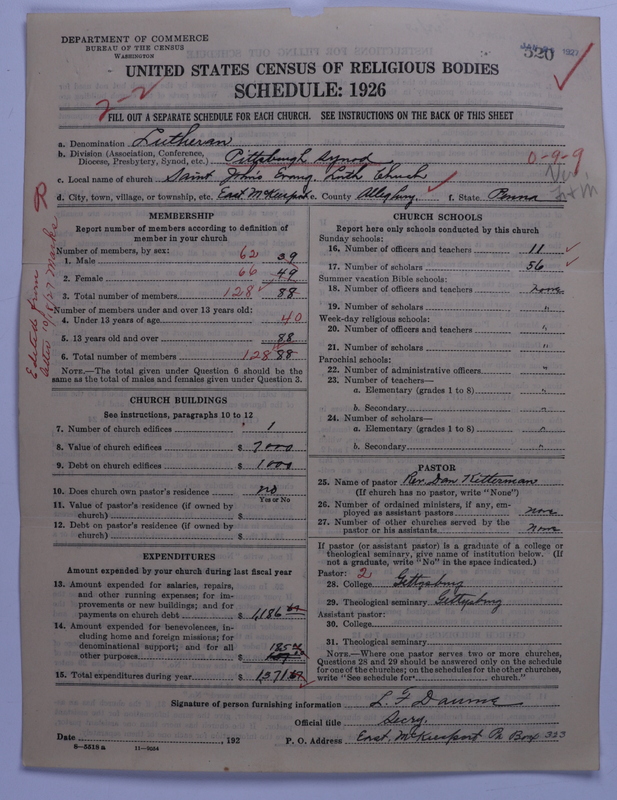 DEPARTMENT OF COMMERCE
BUREAU OF THE CENSUS
WASHINGTON
320
UNITED STATES CENSUS OF RELIGIOUS BODIES
SCHEDULE: 1926
2-2
FILL OUT A SEPARATE SCHEDULE FOR EACH CHURCH. SEE INSTRUCTIONS ON THE BACK OF THIS SHEET
a. Denomination Lutheran
b. Division (Association, Conference, Diocese, Presbytery, Synod, etc.) Pittsburgh Synod 0-9-9
c. Local name of church Saint John's Evang. Luth Church
d. City, town, village, or township, etc. East McKeesport e. County Allegheny f. State Penna
MEMBERSHIP
Report number of members according to definition of
member in your church
Number of members, by sex:
1. Male 62 39
2. Female 66 49
3. Total number of members 128 88
Number of members under and over 13 years old:
4. Under 13 years of age 40
5. 13 years old and over 88
6. Total number of members 128 88
NOTE.—The total given under Question 6 should be
same as the total of males and females given under Question 3.
CHURCH BUILDINGS
See instructions, paragraphs 10 to 12
7. Number of church edifices 1
8. Value of church edifices $ 7000
9. Debt on church edifices $ 1000
10. Does church own pastor's residence no
Yes or No
11. Value of pastor's residence (if owned by
church) $
12. Debt on pastor's residence (if owned by
church) $
EXPENDITURES
Amount expended by your church during last fiscal year
13. Amount expended for salaries, repairs,
and other running expenses; for im-
provements or new buildings; and for
payments on church debt $ 1186
14. Amount expended for benevolences, in-
cluding home and foreign missions; for
denominational support; and for all
other purposes $ 185
15. Total expenditures during year $ 1371
CHURCH SCHOOLS
Report here only schools conducted by this church
Sunday schools:
16. Number of officers and teachers 11
17. Number of scholars 56
Summer vacation Bible schools:
18. Number of officers and teachers none
19. Number of scholars "
Week-day religious schools:
20. Number of officers and teachers "
21. Number of scholars "
Parochial schools:
22. Number of administrative officers "
23. Number of teachers—
a. Elementary (grades 1 to 8) "
b. Secondary "
24. Number of scholars—
a. Elementary (grades 1 to 8) "
b. Secondary "
PASTOR
25. Name of pastor Rev. Dan Kitterman
(If church has no pastor, write "None")
26. Number of ordained ministers, if any, em-
ployed as assistant pastors none
27. Number of other churches served by the
pastor or his assistants None
If pastor (or assistant pastor) is a graduate of a college or
theological seminary, give name of institution below. (If
not a graduate, write "No" in the space indicated.)
Pastor: 2
28. College Gettysburg
29. Theological seminary Gettysburg
Assistant pastor:
30. College
31. Theological seminary
NOTE.—Where one pastor serves two or more churches,
Questions 28 and 29 should be answered only on the schedule
for one of the churches; on the schedules for the other churches,
write "See schedule for church."
Signature of person furnishing information L. F. Daume
Official title Secy.
Date , 192 P. O. Address East. McKeesport Pa Box 323
8-5518 a 11-9054